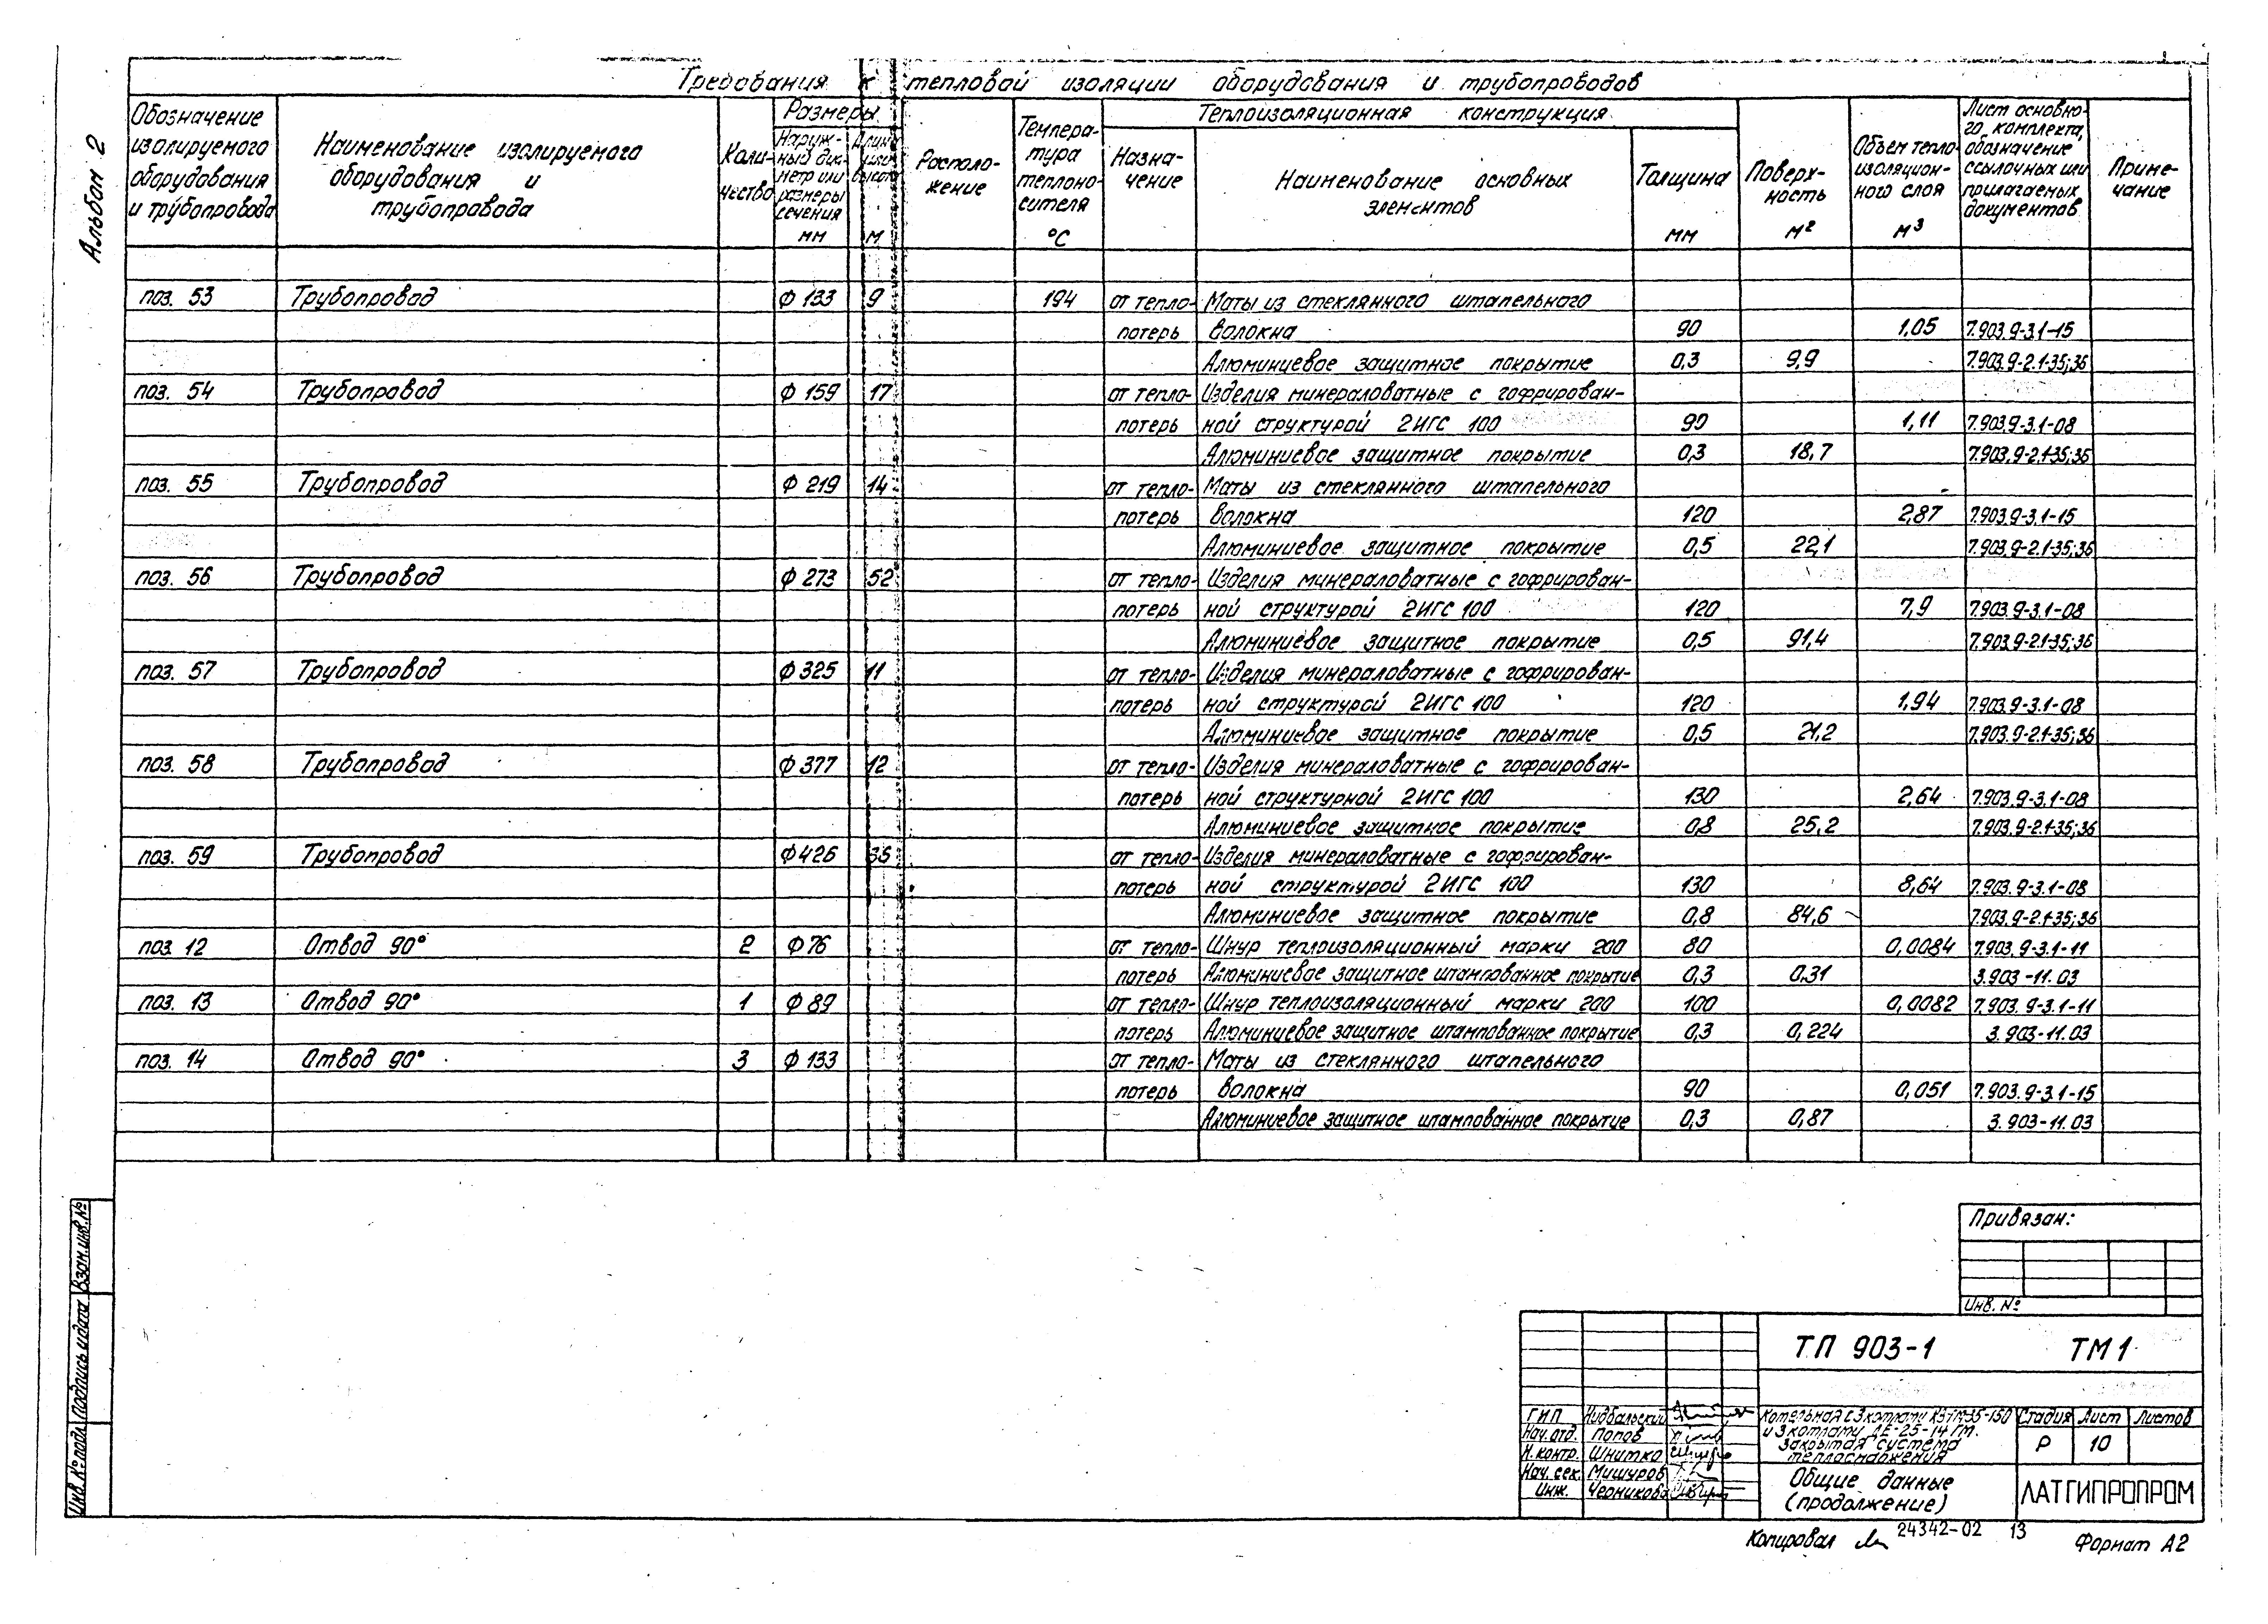 Альбом 2
Требования к тепловой изоляции оборудования и трубопроводов
Обозначение изолируемого оборудования и трубопровода
Наименование изолируемого оборудования и трубопровода
Количество
Размеры
Наружный диаметр или размеры сечения мм
Длина или высота м
Расположение
Температура теплоносителя °С
Теплоизоляционная конструкция
Назначение
Наименование основных элементов
Толщина мм
Поверхность м²
Объем теплоизоляционного слоя м³
Лист основного комплекта, обозначение ссылочных или прилагаемых документов
Примечание
поз. 53 Трубопровод ф 133 9 194 от тепло- Маты из стеклянного штапельного
потерь волокна 90 1,05 7.903.9-3.1-15
Алюминиевое защитное покрытие 0,3 9,9 7.903.9-2.1-35;36
поз. 54 Трубопровод ф 159 17 от тепло- Изделия минераловатные с гофрирован-
потерь ной структурой 2ИГС 100 90 1,11 7.903.9-3.1-08
Алюминиевое защитное покрытие 0,3 18,7 7.903.9-2.1-35;36
поз. 55 Трубопровод ф 219 14 от тепло- Маты из стеклянного штапельного
потерь волокна 120 2,87 7.903.9-3.1-15
Алюминиевое защитное покрытие 0,5 22,1 7.903.9-2.1-35;36
поз. 56 Трубопровод ф 273 52 от тепло- Изделия минераловатные с гофрирован-
потерь ной структурой 2ИГС 100 120 7,9 7.903.9-3.1-08
Алюминиевое защитное покрытие 0,5 91,4 7.903.9-2.1-35;36
поз. 57 Трубопровод ф 325 11 от тепло- Изделия минераловатные с гофрирован-
потерь ной структурой 2ИГС 100 120 1,94 7.903.9-3.1-08
Алюминиевое защитное покрытие 0,5 21,2 7.903.9-2.1-35;36
поз. 58 Трубопровод ф 377 12 от тепло- Изделия минераловатные с гофрирован-
потерь ной структурной 2ИГС 100 130 2,64 7.903.9-3.1-08
Алюминиевое защитное покрытие 0,8 25,2 7.903.9-2.1-35;36
поз. 59 Трубопровод ф 426 35 от тепло- Изделия минераловатные с гофрирован-
потерь ной структурой 2ИГС 100 130 8,64 7.903.9-3.1-08
Алюминиевое защитное покрытие 0,8 84,6 7.903.9-2.1-35;36
поз. 12 Отвод 90° 2 ф 76 от тепло- Шнур теплоизоляционный марки 200 80 0,0084 7.903.9-3.1-11
потерь Алюминиевое защитное штампованное покрытие 0,3 0,31 3.903-11.03
поз. 13 Отвод 90° 1 ф 89 от тепло- Шнур теплоизоляционный марки 200 100 0,0082 7.903.9-3.1-11
потерь Алюминиевое защитное штампованное покрытие 0,3 0,224 3.903-11.03
поз. 14 Отвод 90° 3 ф 133 от тепло- Маты из стеклянного штапельного
потерь волокна 90 0,051 7.903.9-3.1-15
Алюминиевое защитное штампованное покрытие 0,3 0,87 3.903-11.03
Привязан:
Инв. №
ТП 903-1 ТМ1
ГИП Нидбальский
Нач. отд. Попов
Н. контр. Шнитко
Нач. сек. Мишуров
Инж. Черникова
Котельная с 3 котлами
и 3 котлами ДЕ-25-14 ГМ.
Закрытая система
теплоснабжения
Стадия Лист Листов
Р 10
Общие данные
(продолжение)
ЛАТГИПРОПРОМ
Взам. инв. №
Подпись и дата
Инв. № подл.
Копировал 24342-02 13 Формат А2